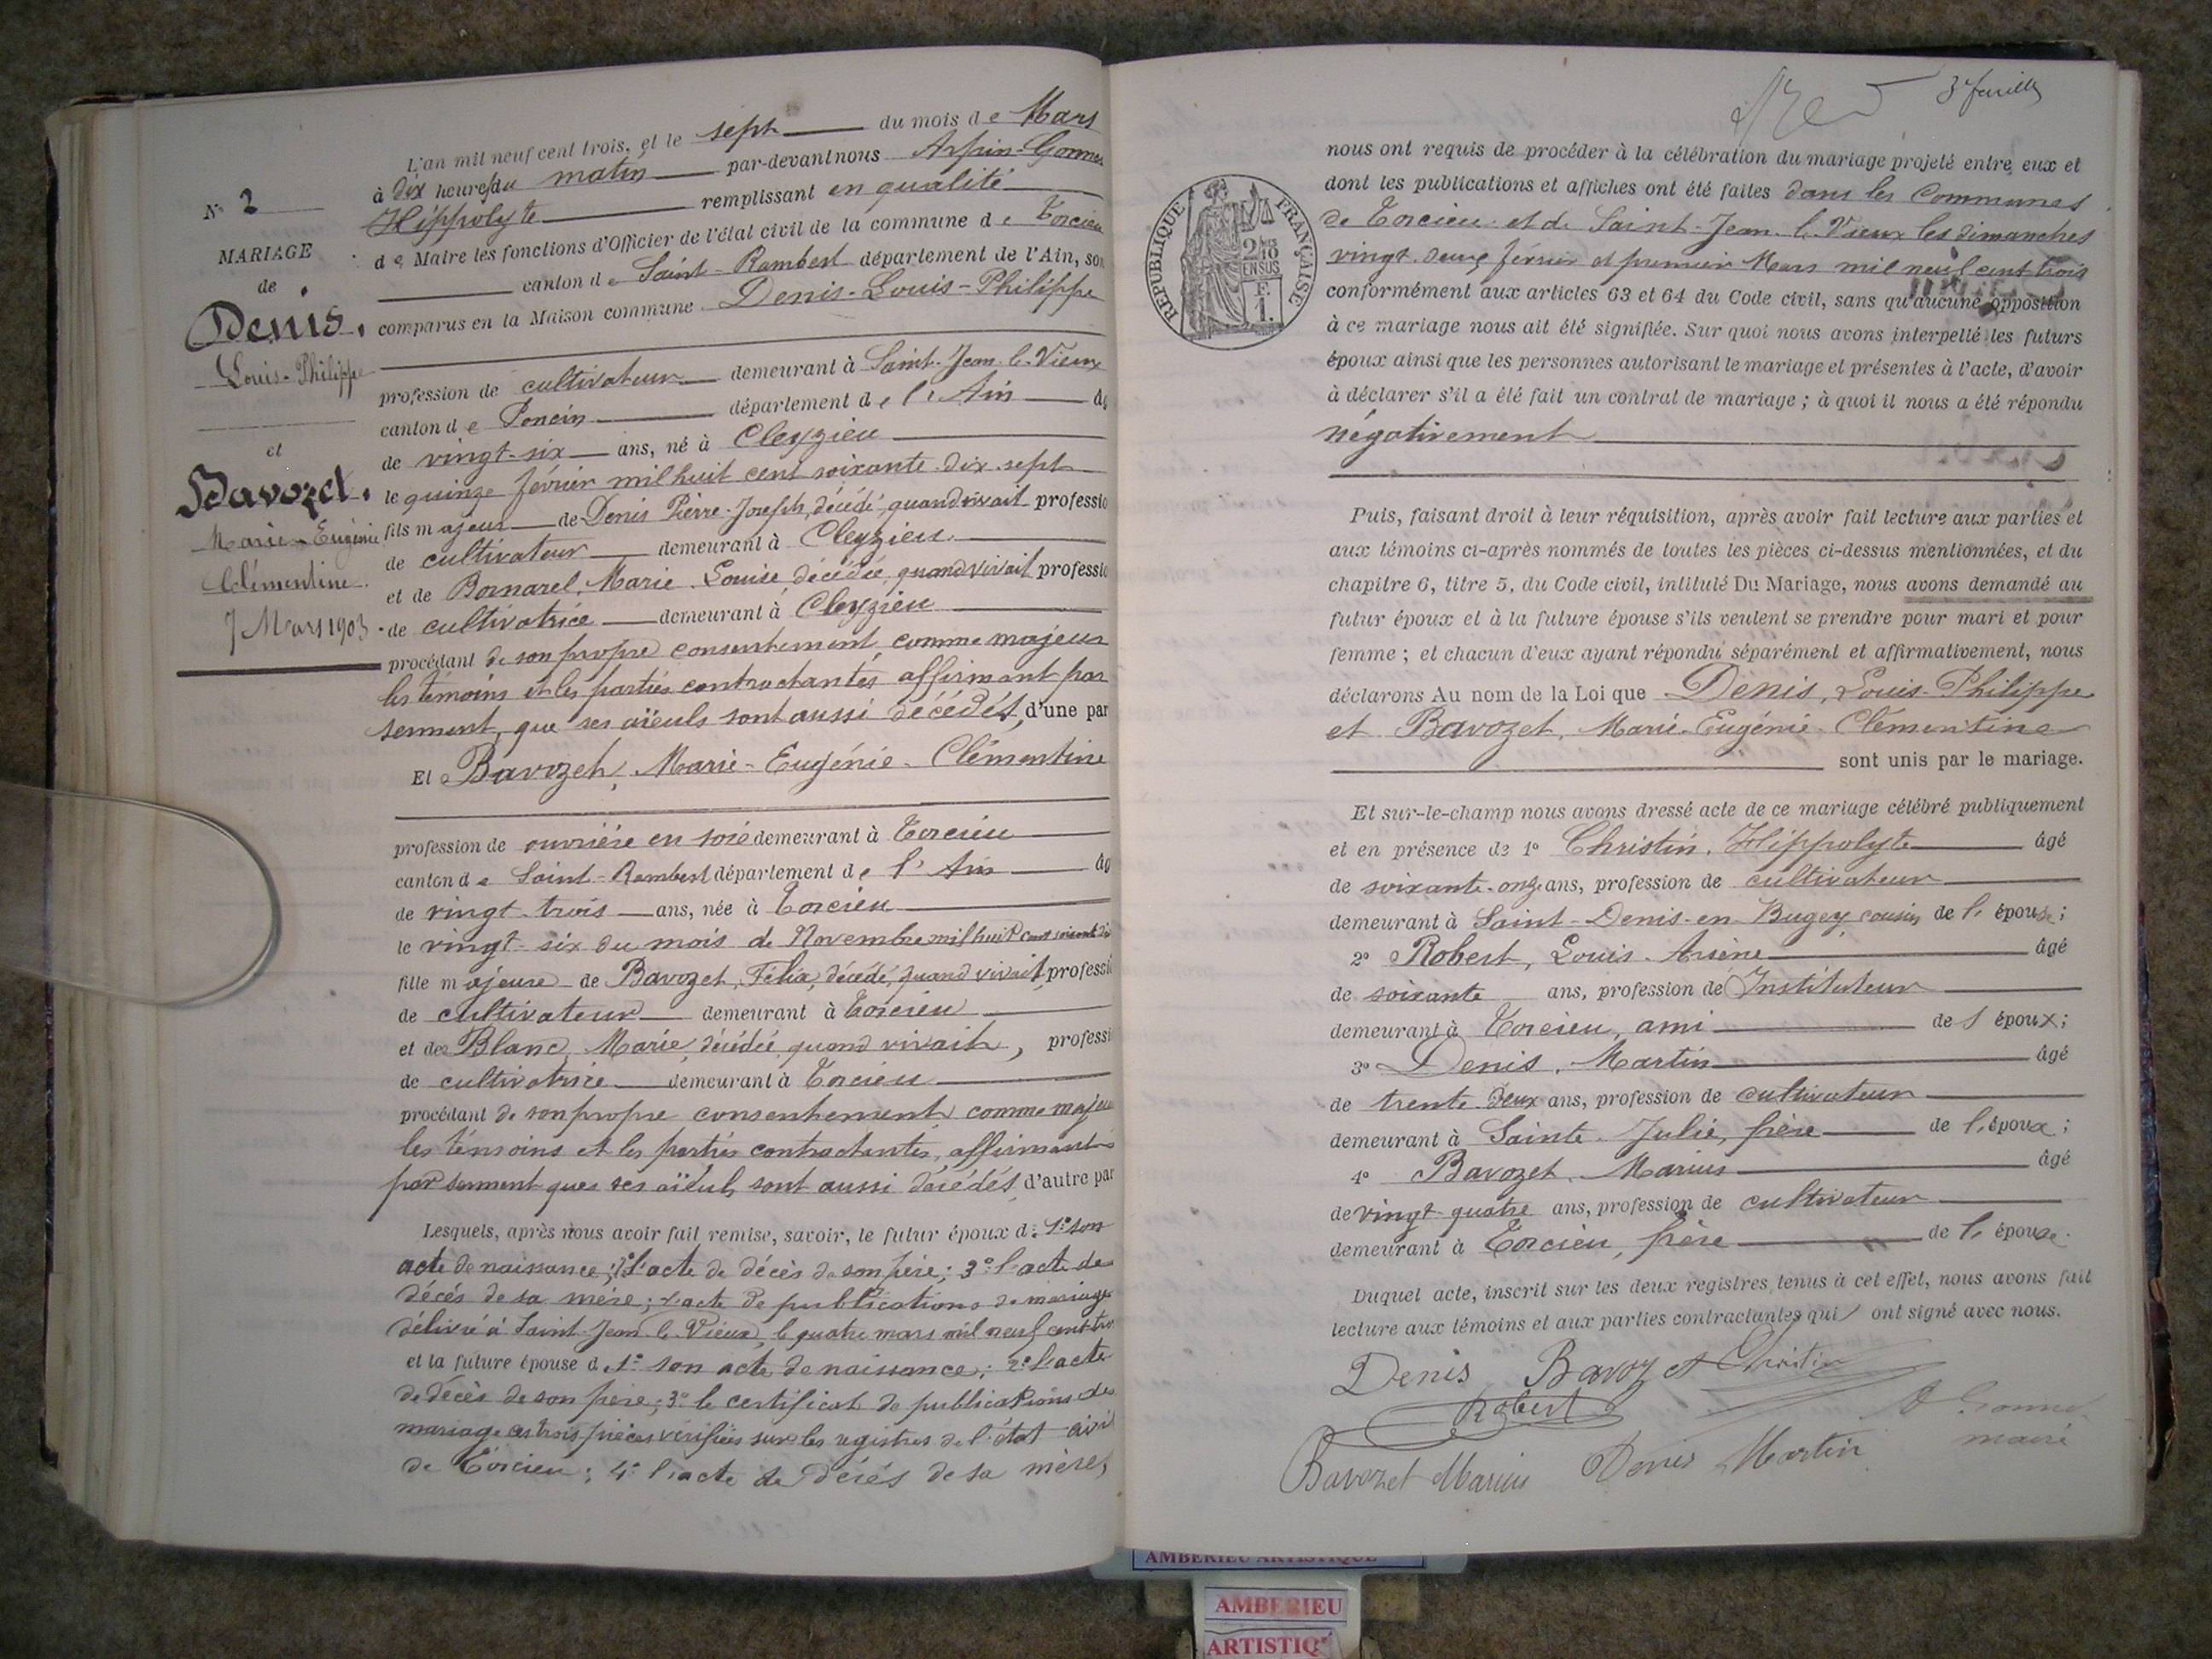 L'an mil neuf cent trois, et le sept du mois de Mars
à dix heures du matin par-devant nous Arpin-Gonnet
Hippolyte remplissant en qualité
de Maire les fonctions d'Officier de l'état civil de la commune de Torcieu
canton de Saint-Rambert département de l'Ain, son
comparus en la Maison commune Denis-Louis-Philippe
profession de cultivateur demeurant à Saint-Jean-le-Vieux
canton de Poncin département de l'Ain âg
de vingt-six ans, né à Cleyzieu
le quinze février mil huit cent soixante-dix-sept
fils majeur de Denis Pierre-Joseph, décédé, quand vivait professio
de cultivateur demeurant à Cleyzieu
et de Bornarel, Marie-Louise, décédée, quand vivait professio
de cultivatrice demeurant à Cleyzieu
procédant de son propre consentement, comme majeur
les témoins et les parties contractantes, affirmant par
serment, que ses aïeuls sont aussi décédés, d'une par
Et Bavozet, Marie-Eugénie-Clémentine
profession de ouvrière en soie demeurant à Torcieu
canton de Saint-Rambert département de l'Ain âg
de vingt-trois ans, née à Torcieu
le vingt-six du mois de Novembre mil huit cent soixante dix
fille majeure de Bavozet, Félix, décédé, quand vivait, professi
de cultivateur demeurant à Torcieu
et de Blanc, Marie, décédée, quand vivait, professi
de cultivatrice demeurant à Torcieu
procédant de son propre consentement comme majeu
les témoins et les parties contractantes, affirmant
par serment que ses aïeuls sont aussi décédés, d'autre par
Lesquels, après nous avoir fait remise, savoir, le futur époux de: 1° son
acte de naissance; 2° l'acte de décès de son père; 3° l'acte de
décès de sa mère; l'acte de publications de mariage
délivré à Saint-Jean-le-Vieux, le quatre mars mil neuf cent tro
et la future épouse de 1° son acte de naissance; 2° l'acte
de décès de son père; 3° le certificat de publications de
mariage ces trois pièces vérifiées sur les registres de l'état civil
de Torcieu; 4° l'acte de décès de sa mère,
N° 2
MARIAGE
de
Denis.
Louis-Philippe
et
Bavozet.
Marie-Eugénie
Clémentine
7 Mars 1903
3e feuille
REPUBLIQUE FRANÇAISE
2/10
EN SUS
F.
1.
nous ont requis de procéder à la célébration du mariage projeté entre eux et
dont les publications et affiches ont été faites dans les Communes
de Torcieu et de Saint-Jean-le-Vieux les dimanches
vingt-deux février et premier Mars mil neuf cent trois
conformément aux articles 63 et 64 du Code civil, sans qu'aucune opposition
à ce mariage nous ait été signifiée. Sur quoi nous avons interpellé les futurs
époux ainsi que les personnes autorisant le mariage et présentes à l'acte, d'avoir
à déclarer s'il a été fait un contrat de mariage; à quoi il nous a été répondu
négativement
Puis, faisant droit à leur réquisition, après avoir fait lecture aux parties et
aux témoins ci-après nommés de toutes les pièces ci-dessus mentionnées, et du
chapitre 6, titre 5, du Code civil, intitulé Du Mariage, nous avons demandé au
futur époux et à la future épouse s'ils veulent se prendre pour mari et pour
femme; et chacun d'eux ayant répondu séparément et affirmativement, nous
déclarons Au nom de la Loi que Denis, Louis-Philippe
et Bavozet, Marie-Eugénie-Clémentine
sont unis par le mariage.
Et sur-le-champ nous avons dressé acte de ce mariage célébré publiquement
et en présence de 1° Christin, Hippolyte âgé
de soixante-onze ans, profession de cultivateur
demeurant à Saint-Denis-en-Bugey, cousin de l'épouse;
2° Robert, Louis-Arsène âgé
de soixante ans, profession de Instituteur
demeurant à Torcieu, ami de l'époux;
3° Denis, Martin âgé
de trente-deux ans, profession de cultivateur
demeurant à Sainte-Julie, frère de l'époux;
4° Bavozet, Marius âgé
de vingt-quatre ans, profession de cultivateur
demeurant à Torcieu, frère de l'épouse.
Duquel acte, inscrit sur les deux registres tenus à cet effet, nous avons fait
lecture aux témoins et aux parties contractantes qui ont signé avec nous.
Denis Bavozet Christin
Robert A Gonnet
maire
Bavozet Marius Denis Martin
AMBERIEU ARTISTIQUE
AMBERIEU
ARTISTIQ